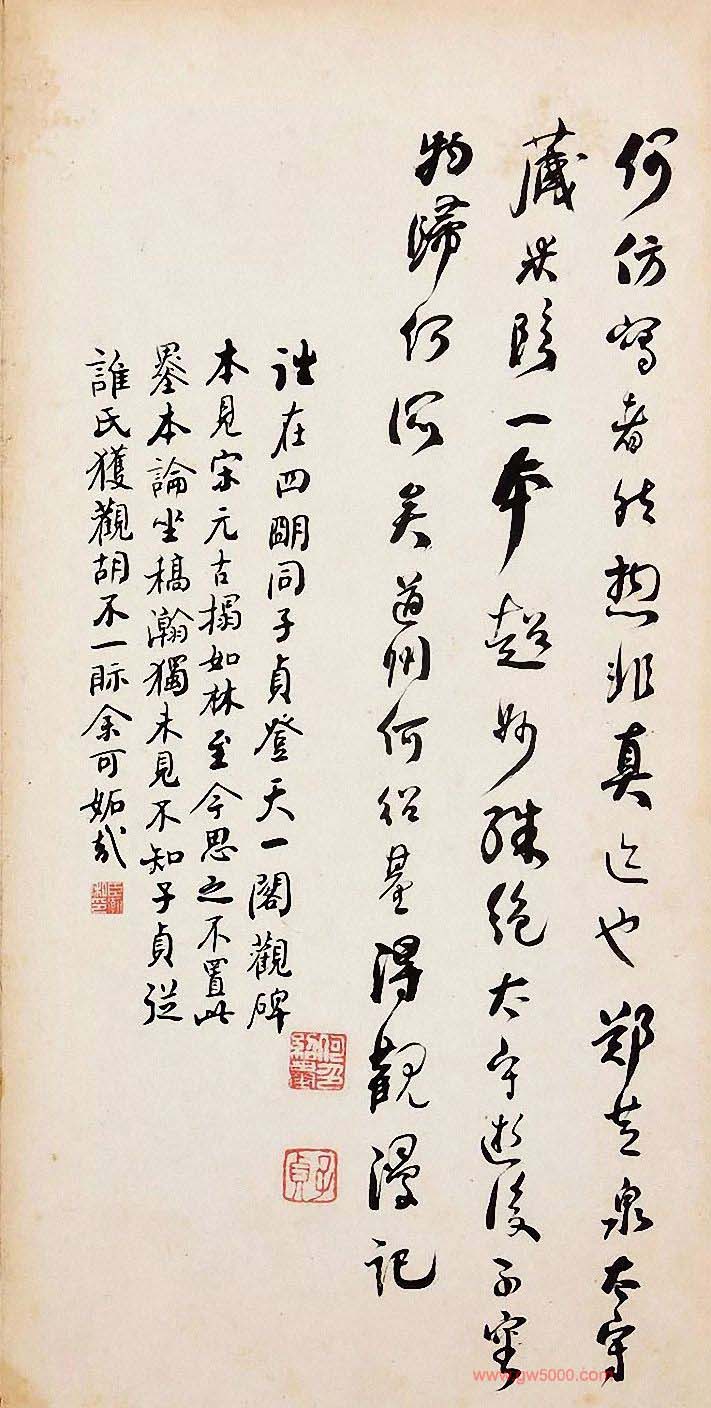 何仿寫者然想非真迹也鄭芝泉太守
藏米臨一本超妙殊絕太守逝後不審
物歸何所矣道州何紹基得觀漫記
何紹基印
子貞
往在四明同子貞登天一閣觀碑
本見宋元古搨如林至今思之不置此
墨本論坐稿瀚獨未見不知子貞從
誰氏獲觀胡不一眎余可妬哉
www.gw5000.com